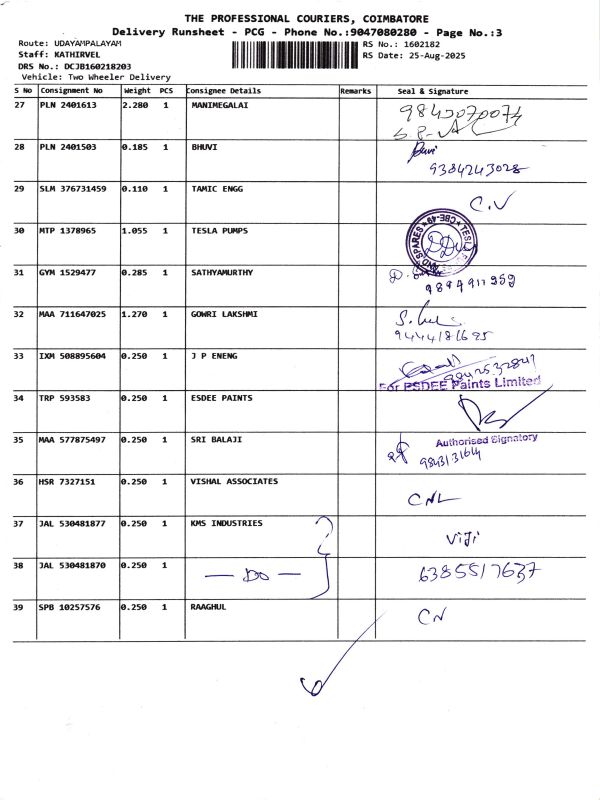 THE PROFESSIONAL COURIERS, COIMBATORE
Delivery Runsheet - PCG - Phone No.:9047080280 - Page No.:3
Route: UDAYAMPALAYAM
RS No.: 1602182
Staff: KATHIRVEL
RS Date: 25-Aug-2025
DRS No.: DCJB160218203
Vehicle: Two Wheeler Delivery
S No Consignment No Weight PCS Consignee Details Remarks Seal & Signature
27 PLN 2401613 2.280 1 MANIMEGALAI 9843070074
28 PLN 2401503 0.185 1 BHUVI Buvi
9384243028
29 SLM 376731459 0.110 1 TAMIC ENGG C.V
30 MTP 1378965 1.055 1 TESLA PUMPS
TESLA AND SPARES CBE-49
31 GYM 1529477 0.285 1 SATHYAMURTHY
32 MAA 711647025 1.270 1 GOWRI LAKSHMI
9444181695
33 IXM 508895604 0.250 1 J P ENENG
9842532841
For ESDEE Paints Limited
34 TRP 593583 0.250 1 ESDEE PAINTS
Authorised Signatory
35 MAA 577875497 0.250 1 SRI BALAJI
36 HSR 7327151 0.250 1 VISHAL ASSOCIATES CNL
37 JAL 530481877 0.250 1 KMS INDUSTRIES Viji
38 JAL 530481870 0.250 1 — DO — 6385517637
39 SPB 10257576 0.250 1 RAAGHUL CN